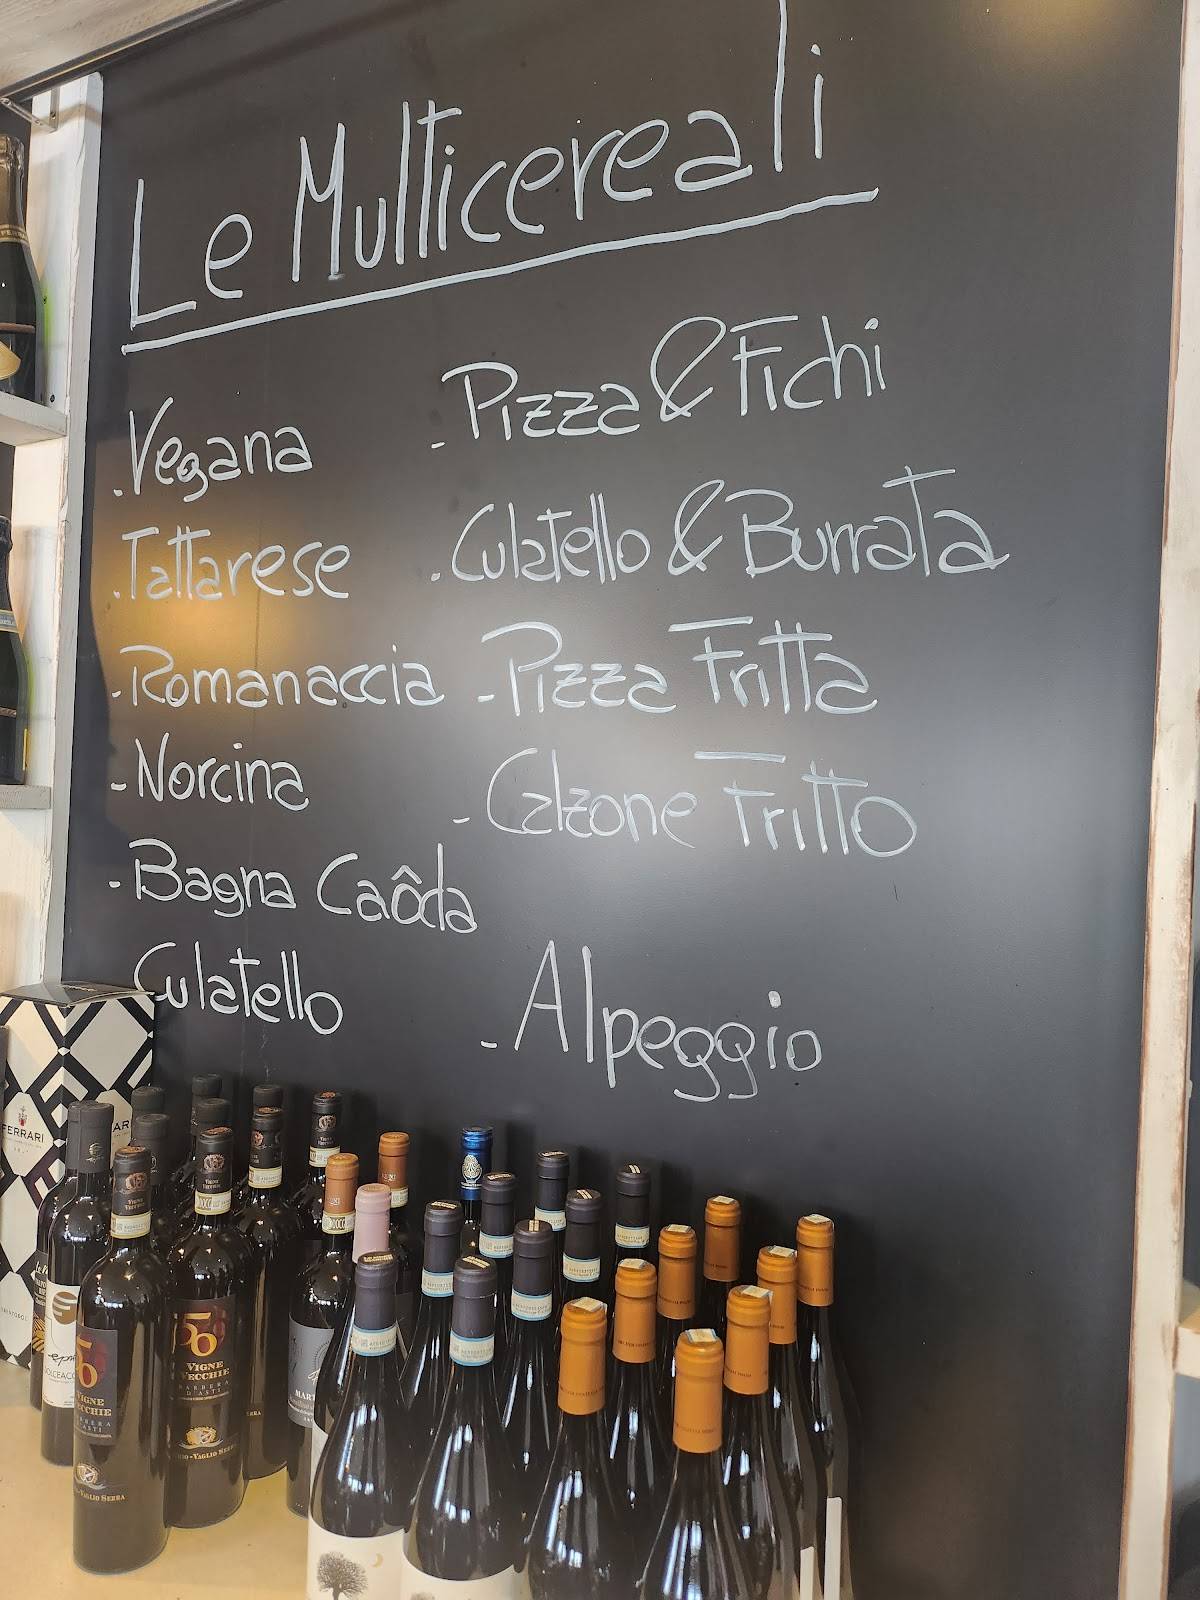 Le Multicereali
. Vegana
. Tattarese
- Romanaccia
- Norcina
- Bagna Caôda
Culatello
- Pizza & Fichi
. Culatello & Burrata
- Pizza Fritta
- Calzone Fritto
- Alpeggio
FERRARI
56
VIGNE
VECCHIE
BARBERA
D'ASTI
56
VIGNE
VECCHIE
BARBERA
D'ASTI